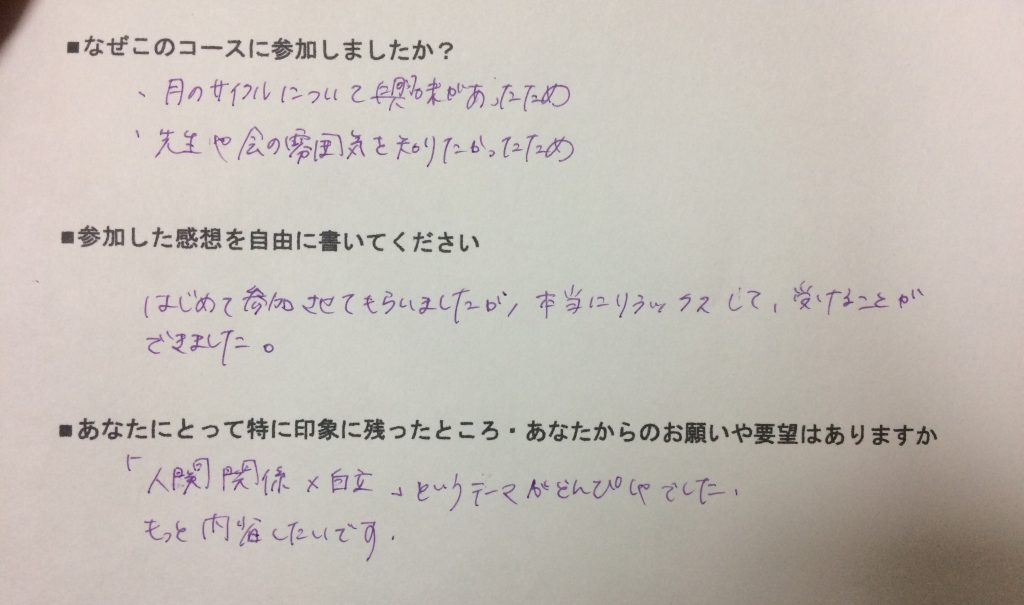 ■なぜこのコースに参加しましたか？
、月のサイクルについて興味があったため
、先生や会の雰囲気を知りたかったため
■参加した感想を自由に書いてください
はじめて参加させてもらいましたが、本当にリラックスして、受けることが
できました。
■あなたにとって特に印象に残ったところ・あなたからのお願いや要望はありますか
「人間関係×自立」というテーマがどんぴしゃでした。
もっと内省したいです.